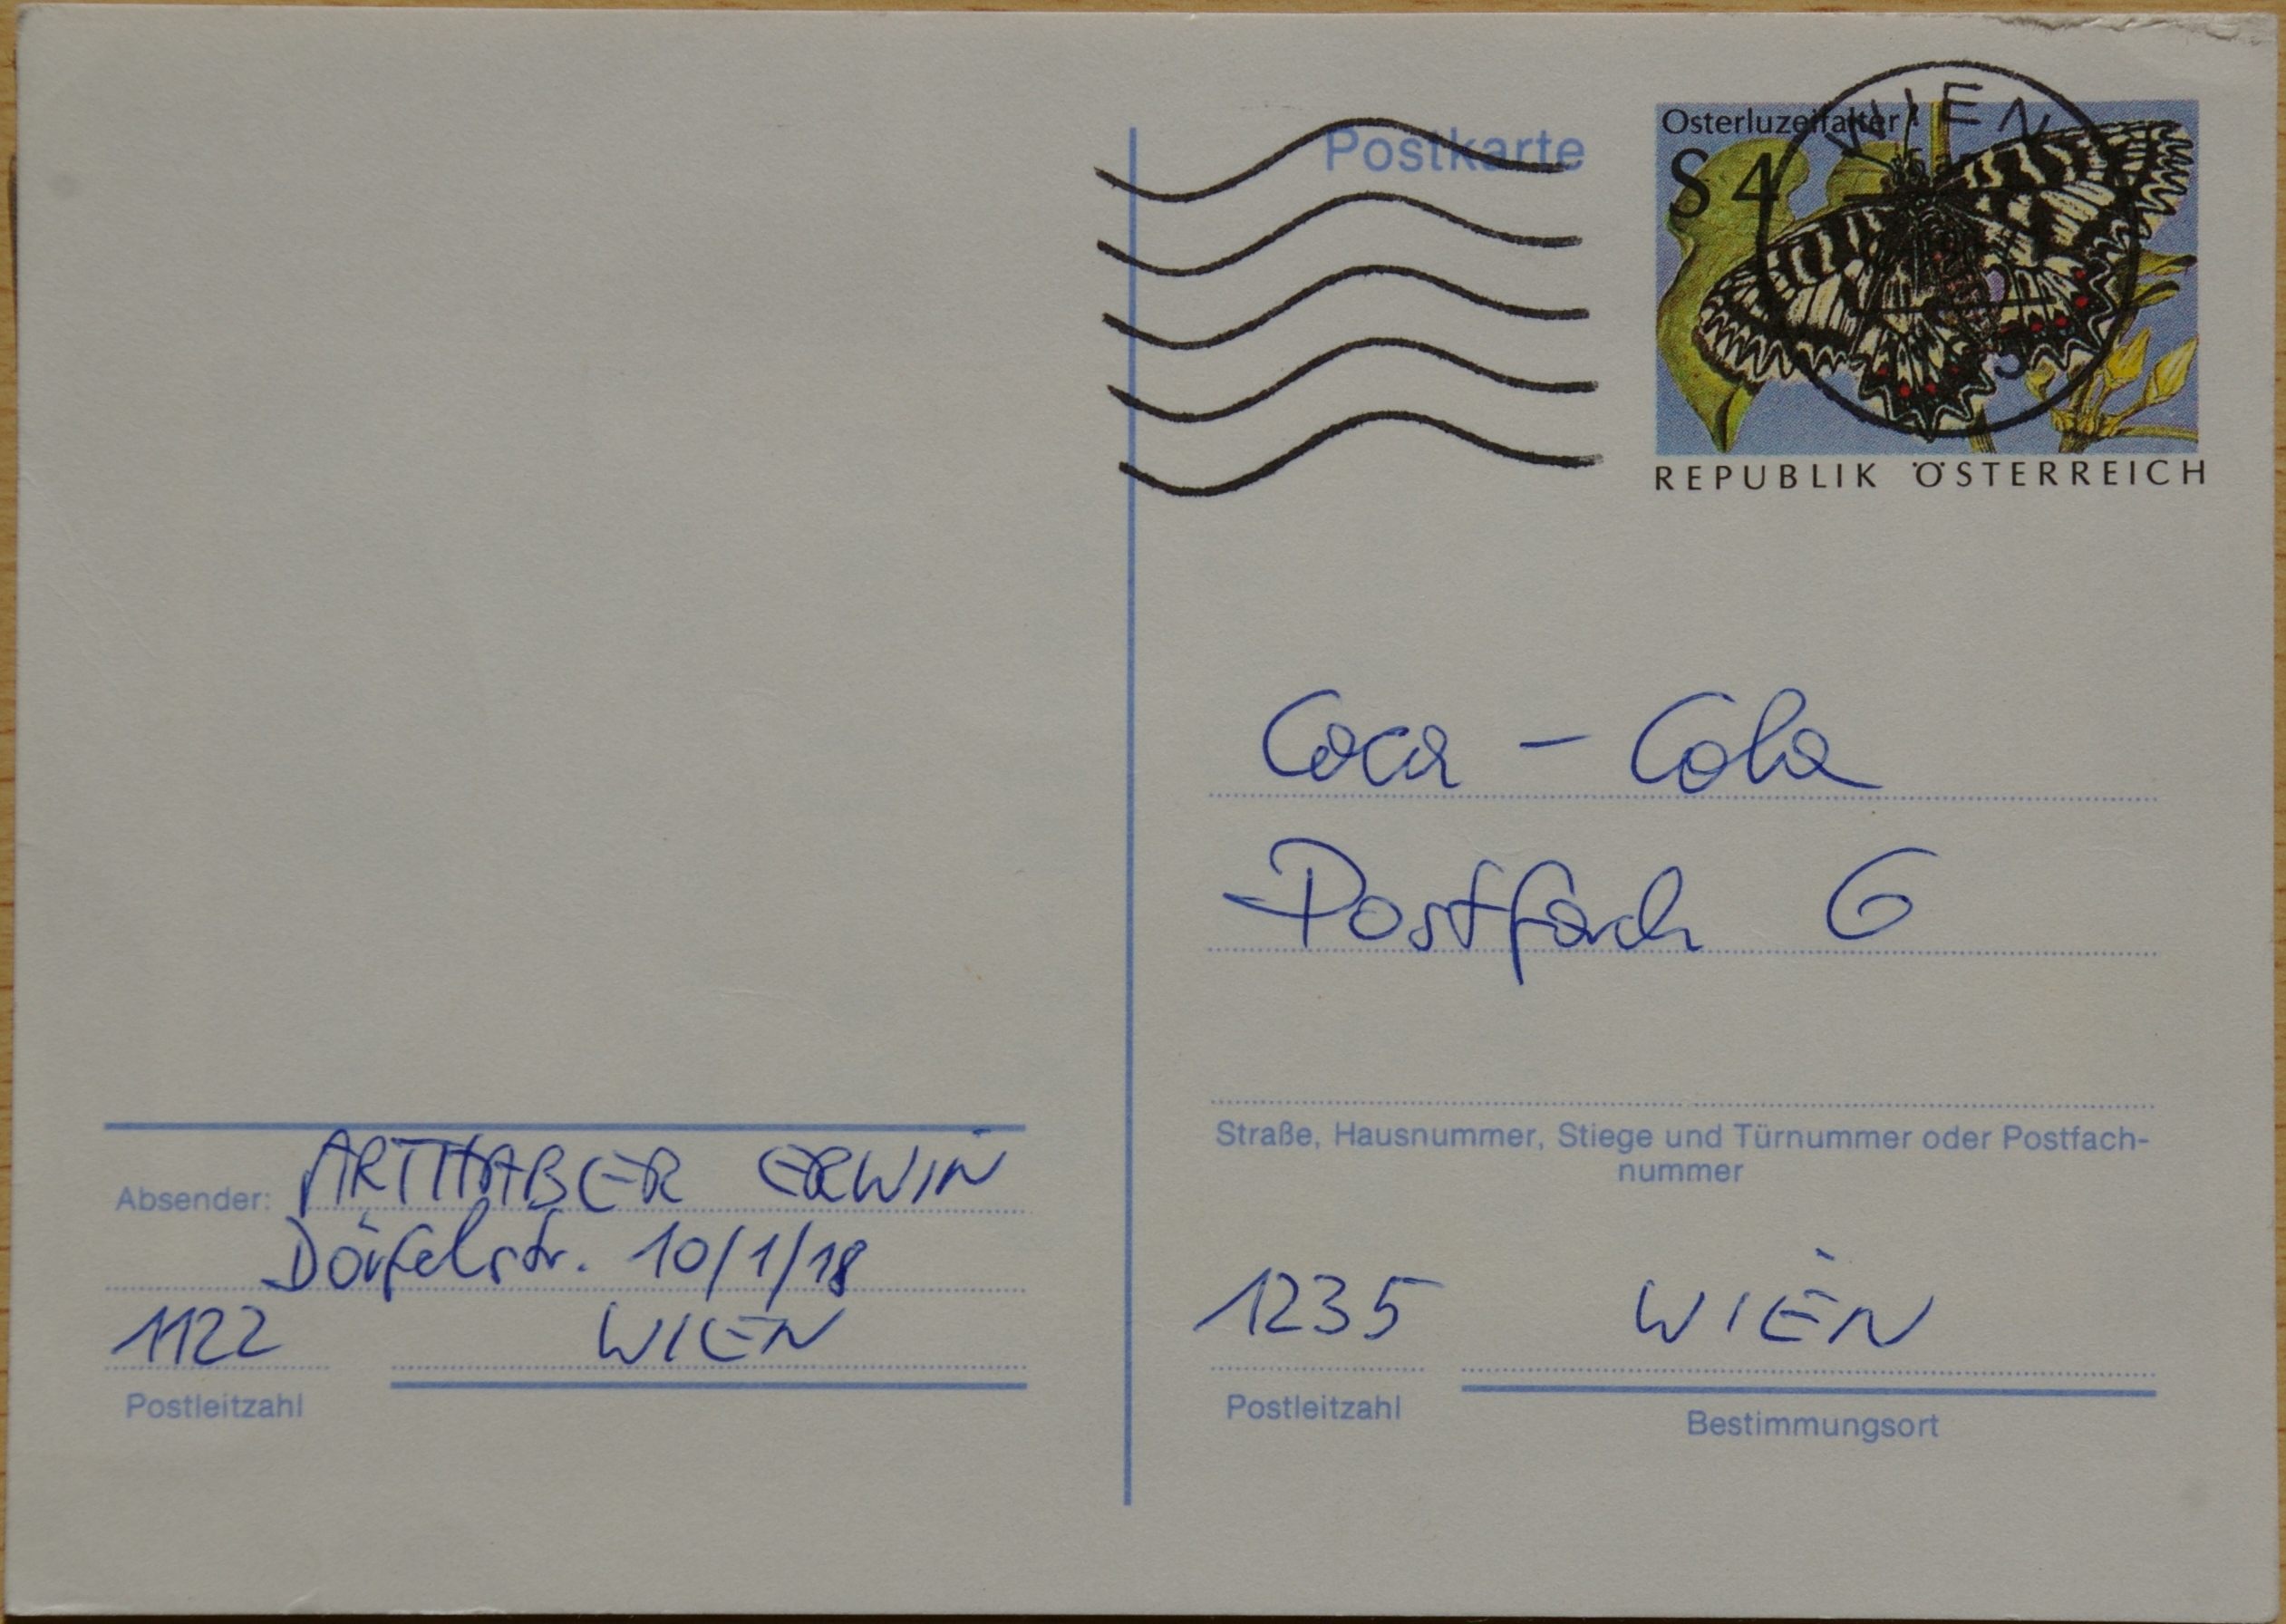 Postkarte
Osterluzeifalter
S 4
WIEN
REPUBLIK ÖSTERREICH
Coca - Cola
Postfach 6
Straße, Hausnummer, Stiege und Türnummer oder Postfach-
nummer
1235 WIEN
Postleitzahl
Bestimmungsort
Absender: ARTHABER ERWIN
Dörfelstr. 10/1/18
1122 WIEN
Postleitzahl